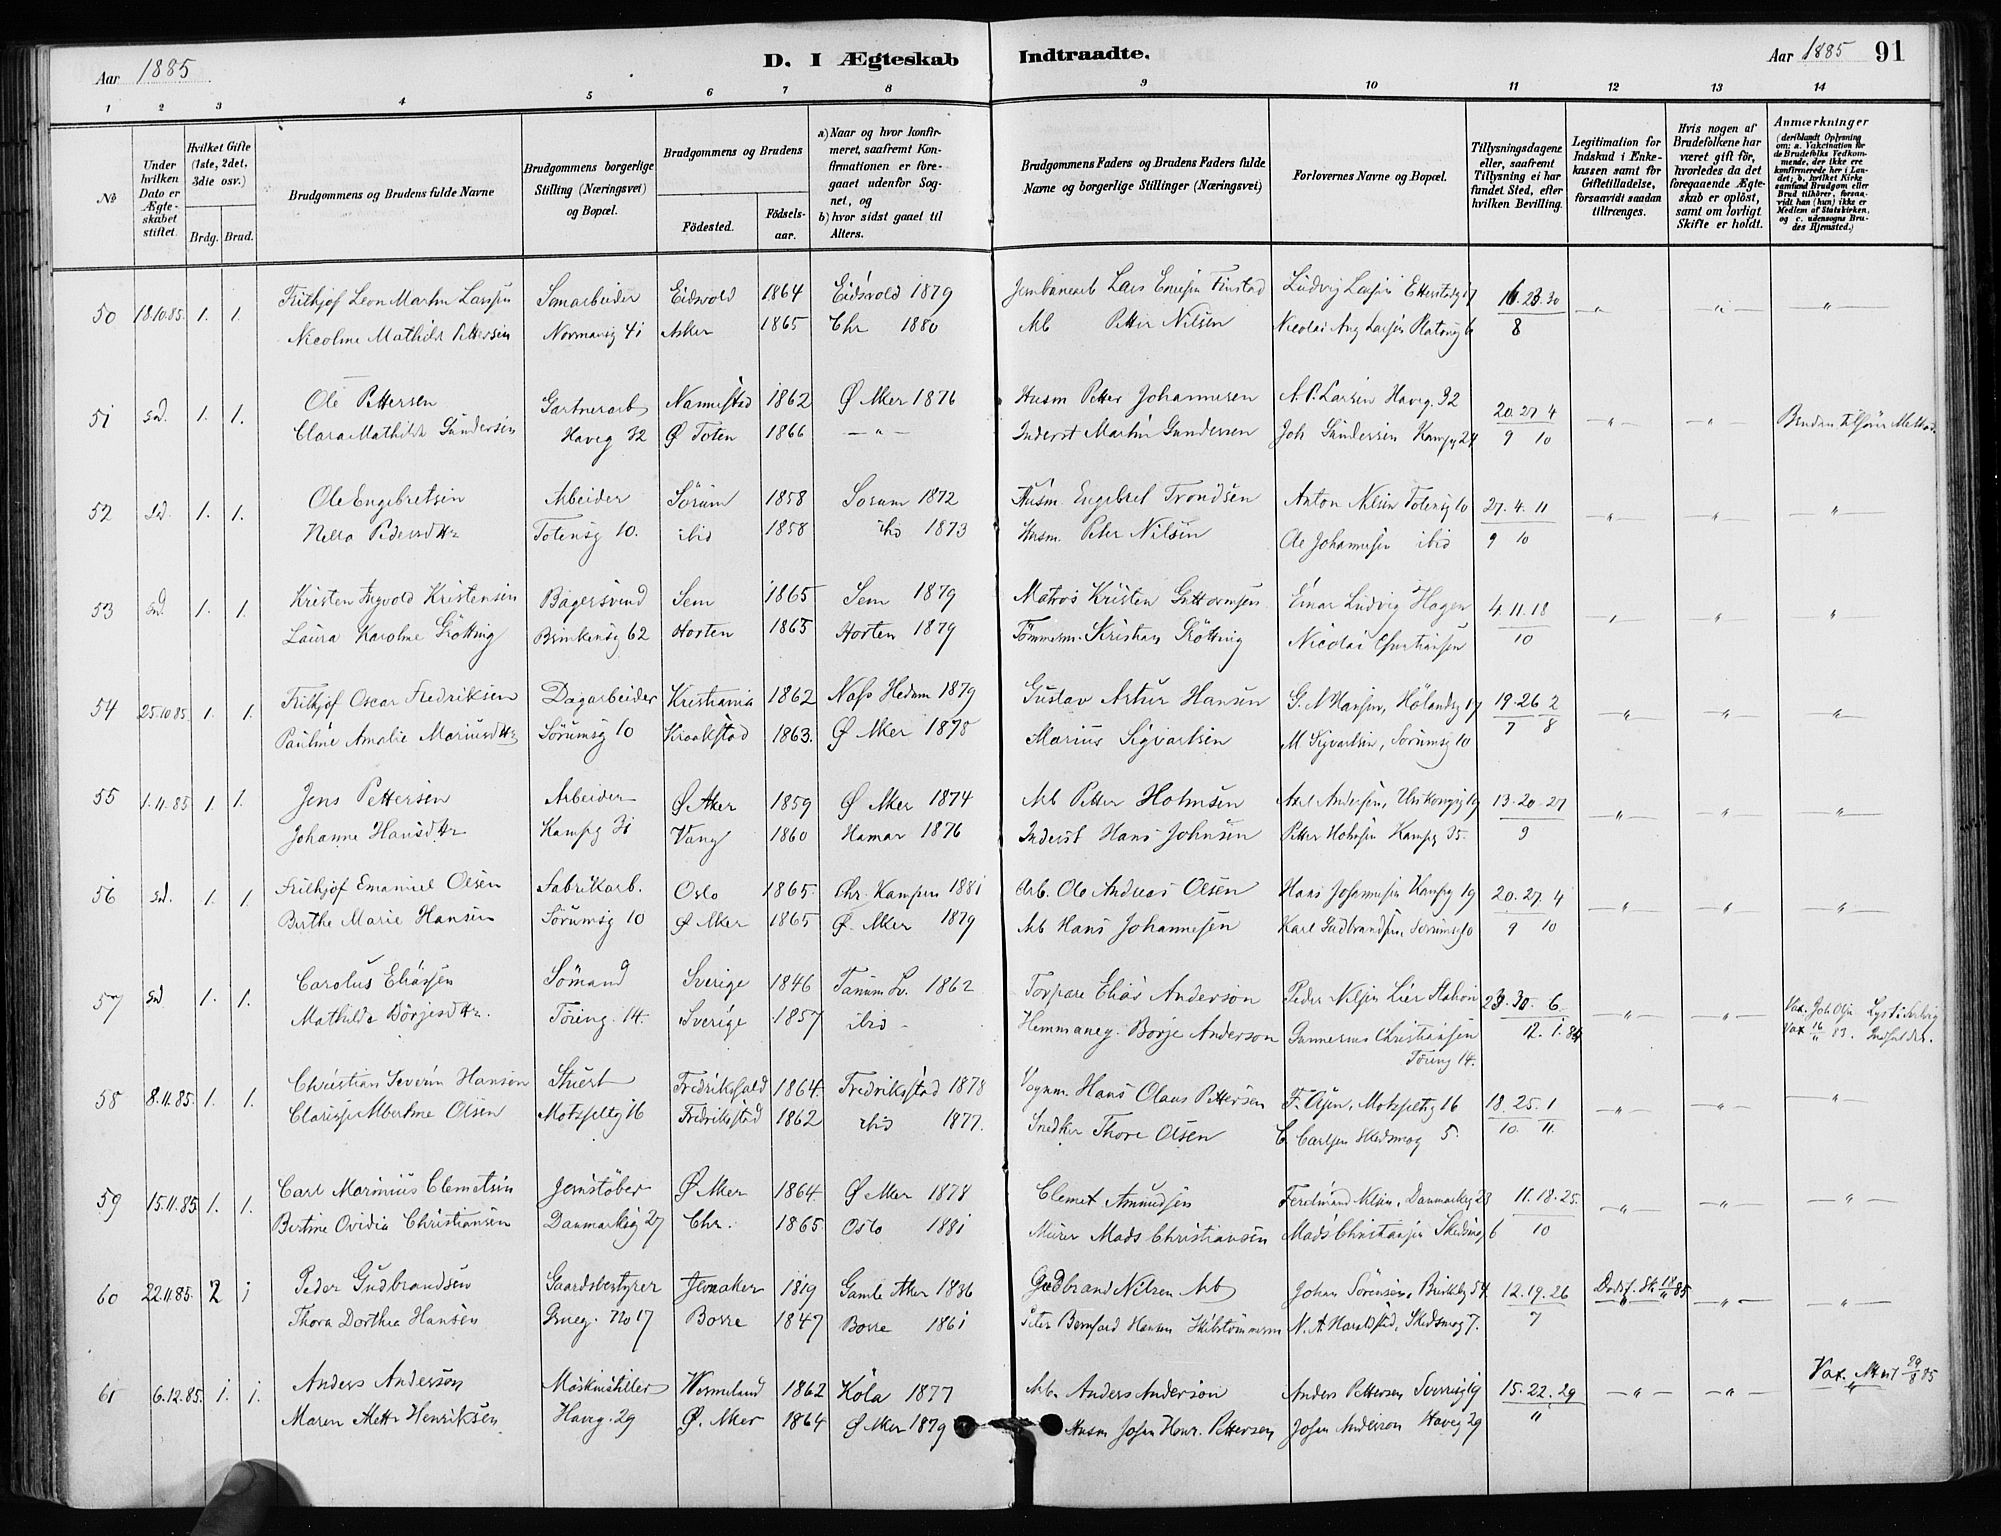 Aar 1885
D. I Ægteskab Indtraadte.
Aar 1885 91
1 2 3 4 5 6 7 8 9 10 11 12 13 14
No
Under hvilken Dato er Ægteskabet stiftet.
Hvilket Gifte (1ste, 2det, 3die osv.)
Brdg. Brud.
Brudgommens og Brudens fulde Navne
Brudgommens borgerlige Stilling (Næringsvei) og Bopæl.
Brudgommens og Brudens
Födested. Födselsaar.
a) Naar og hvor konfirmeret, saafremt Konfirmationen er foregaaet udenfor Sognet, og
b) hvor sidst gaaet til Alters.
Brudgommens Faders og Brudens Faders fulde Navne og borgerlige Stillinger (Næringsvei)
Forlovernes Navne og Bopæl.
Tillysningsdagene eller, saafremt Tillysning ei har fundet Sted, efter hvilken Bevilling.
Legitimation for Indskud i Enkekassen samt for Giftetilladelse, forsaavidt saadan tiltrænges.
Hvis nogen af Brudefolkene har været gift för, hvorledes da det foregaaende Ægteskab er oplöst, samt om lovligt Skifte er holdt.
Anmærkninger
(deriblandt Oplysning om: a. Vakcination for de Brudefolks Vedkommende, der ikke ere konfirmerede her i Landet; b. hvilket Kirkesamfund Brudgom eller Brud tilhörer, forsaavidt han (hun) ikke er Medlem af Statskirken, og c. udensogns Brudes Hjemsted.)
50 18.10.85. 1. 1. Frithjof Leon Martin Larssen 1864 Eidsvold 1879 Jernbanearb Lars Finstad Ludvig Larsen 16.23.30
Nicoline Mathilde Pettersen Asker 1865 Chr 1880 Arb Petter Nilsen Nicolai Aug Larsen 6 8
51 sd. 1. 1. Ole Pettersen Gartnerarb Nannestad 1862 Ø Aker 1876 Husm Petter Johannesen N.P. Larsen Haveg. 32 20.27.4
Clara Mathilde Gundersen Haveg 32 Ø Toten 1866 — " — Inderst Martin Gundersen Joh Gundersen Kampg 24 9 10 Bruden tilhører
52 sd. 1. 1. Ole Engebretsen Arbeider Sörum 1858 Sorum 1872 Husm. Engebret Trondsen Anton Nilsen Totensg 10 27.4.11
Pedersdttr Totensg 10. ibid 1858 ibid 1873 Husm. Peter Nilsen Ole Johannesen ibid 9 10
53 sd. 1. 1. Kristen Ingvold Kristensen Bagersvend Sem 1865 Sem 1879 Matros Kristen Guttormsen Einar Ludvig Hagen 4.11.18
Laura Karoline Grötting 62 Horten 1865 Horten 1879 Tömmerm. Kristian Grötting Nicolai Christiansen 10
54 25.10.85. 1. 1. Frithjof Oscar Fredriksen Dagarbeider Kristiania 1862 Næs Hedem 1879 Gustav Artur Hansen G. A Hansen, Hölandsg 17 19.26 2
Pauline Amalie Mariusdttr Sörumsg 10 Kraakstad 1863. Ø Aker 1878 Marius Sigvartsen M Sigvartsen, Sorumsg 10 7 8
55 1.11.85 1. 1. Jens Pettersen Arbeider Ø Aker 1859 Ø Aker 1874 Arb Petter Holmsen Axel Andersen, 13.20.27
Johanne Hansdttr Kampg 31 Vang 1860 Hamar 1876 Inderst Hans Johnsen Petter Holmsen Kampg 35. 9
56 sd. 1. 1 Frithjof Emanuel Olsen Fabrikarb. Oslo 1865 Chr. Kampen 1881 Arb. Ole Andreas Olsen Hans Johannesen Kampg 19 20.27.4
Berthe Marie Hansen Sörumsg 10 Ø Aker 1865 Ø. Aker 1879 Arb Hans Johannesen Karl Gudbrandsen, Sorumsg 10 9 10
57 sd 1. 1. Carolus Eliassen Sömand Sverige 1846 Tanum Sv. 1862 Torpare Elias Anderson Peder Nilsen Lier Station 23.30. 6 Vax. Joh Olsen
Mathilda Börjesdttr. 14. Sverige 1857 ibid Hemmaneg. Börje Anderson Gunnerius Christiansen 12. 1. Vax 83.
14.
58 8.11.85. 1. 1. Christian Severin Hansen Stuert Fredrikshald 1864. Fredrikstad 1878 Vognm. Hans Olaus Pettersen F. Olsen, Motzfeltsg 16 18.25.1
Albertine Olsen Motzfeltsg 16 Fredrikstad 1862 ibid 1877. Snedker Thore Olsen C. Carlsen Skedsmog 5. 10 11
59 15.11.85. 1. 1. Carl Marinius Clemetsen Jernstöber Ø Aker 1864 Ø Aker 1878 Clemet Amundsen Ferdinand Nilsen, Danmarksg 23 11.18.25
Bertine Ovidia Christiansen Danmarksg 27 Chr. 1865 Oslo 1881 Murer Mads Christiansen Mads Christiansen Skedsmog 6 10
60 22.11.85. 2 1 Peder Gudbrandsen Gaardsbestyrer Jevnaker 1819 Gamle Aker 1836 Gudbrand Nilsen Arb Johan Sörensen, 54 12.19.26
Thora Dorthea Hansen Grueg. No 17 Borre 1847 Borre 1861 Hansen Skibstömmerm N. A. Haraldstad, Skedsmog 7. 7
61 6.12.85. 1. 1. Anders Anderson Maskinstiller Wermeland 1862 Köla 1877 Arb. Anders Anderson Anders Pettersen Sverrisg 15.22.29 Vax. Attest
Maren Mette Henriksen Haveg. 29 Ø. Aker 1864 Ø Aker 1879 Husm Johan Henr. Pettersen Johan Anderson Haveg 29 11